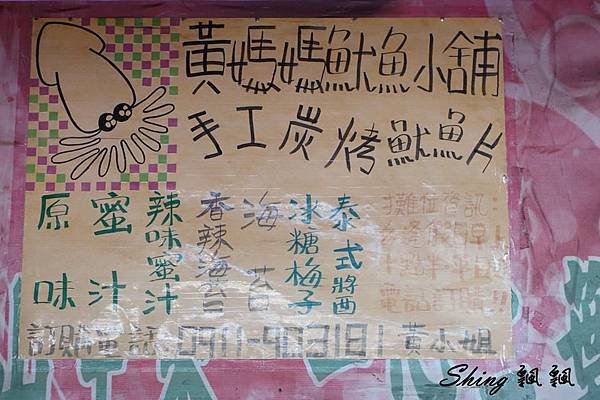 黃媽媽魷魚小舖
手工炭烤魷魚片
原味
蜜汁
辣味蜜汁
香辣海苔
海苔
冰糖梅子
泰式醬
攤位資訊:
訂購電話 0911-903181 黃小姐
Shing 飄飄